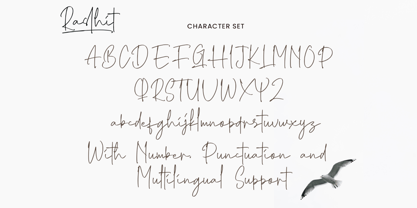 Radhit
CHARACTER SET
ABCDEFGHIJKLMNOP
QRSTUVWXYZ
abcdefghijklmnopqrstuvwxyz
With Number, Punctuation and
Multilingual Support